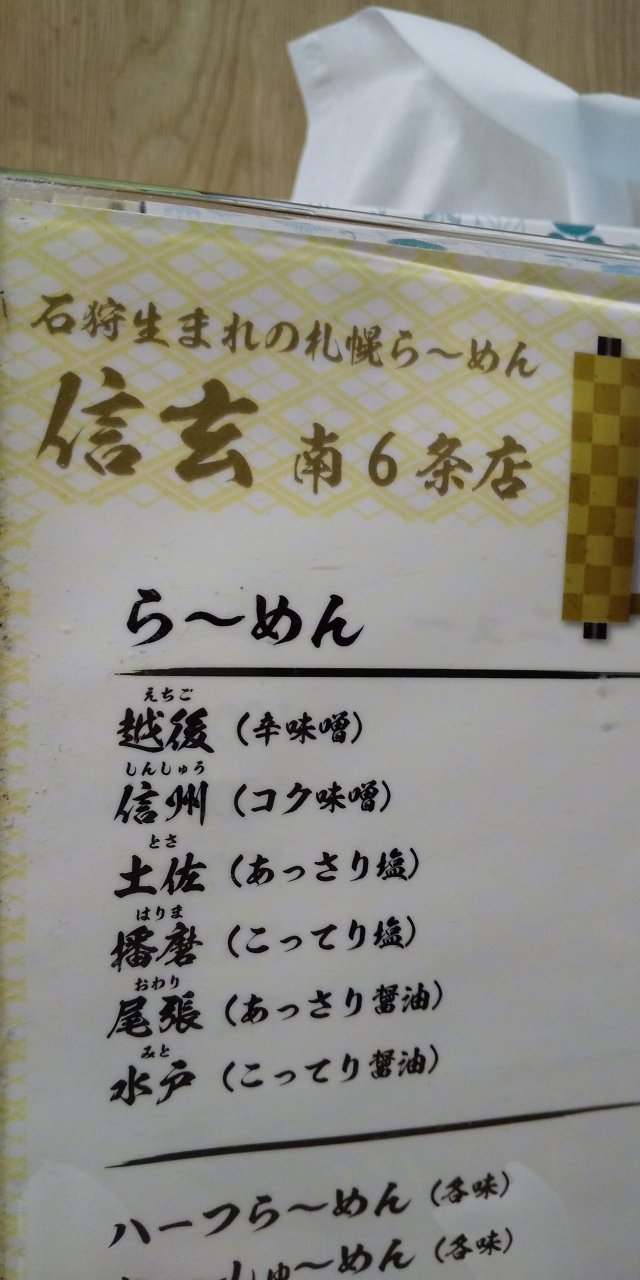 石狩生まれの札幌ら〜めん
信玄 南6条店
ら〜めん
えちご
越後（辛味噌）
しんしゅう
信州（コク味噌）
とさ
土佐（あっさり塩）
はりま
播磨（こってり塩）
おわり
尾張（あっさり醤油）
みと
水戸（こってり醤油）
ハーフら〜めん（各味）
ゅ〜めん（各味）